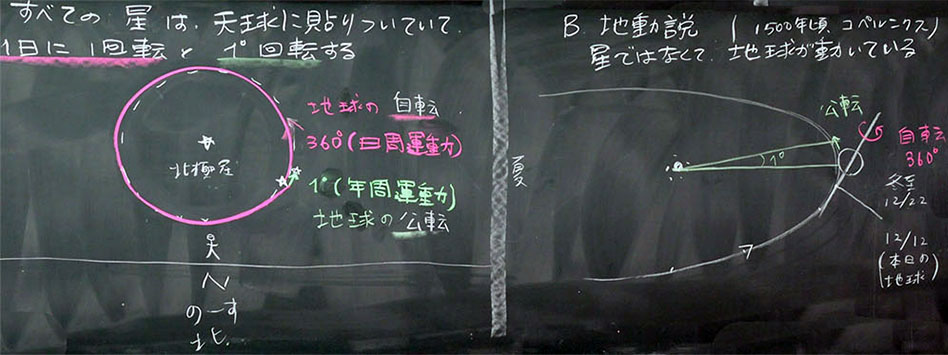 すべての 星 は、天球に貼りついていて、
1日に 1回転 と 1°回転する
地球の 自転
360°(日周運動)
北極星
1°(年周運動)
地球の 公転
の一す
北
夏
B 地動説 (1500年頃 コペルニクス)
星ではなくて、地球が動いている
公転
1°
自転
360°
冬至
12/22
12/12
(本日の
地球)